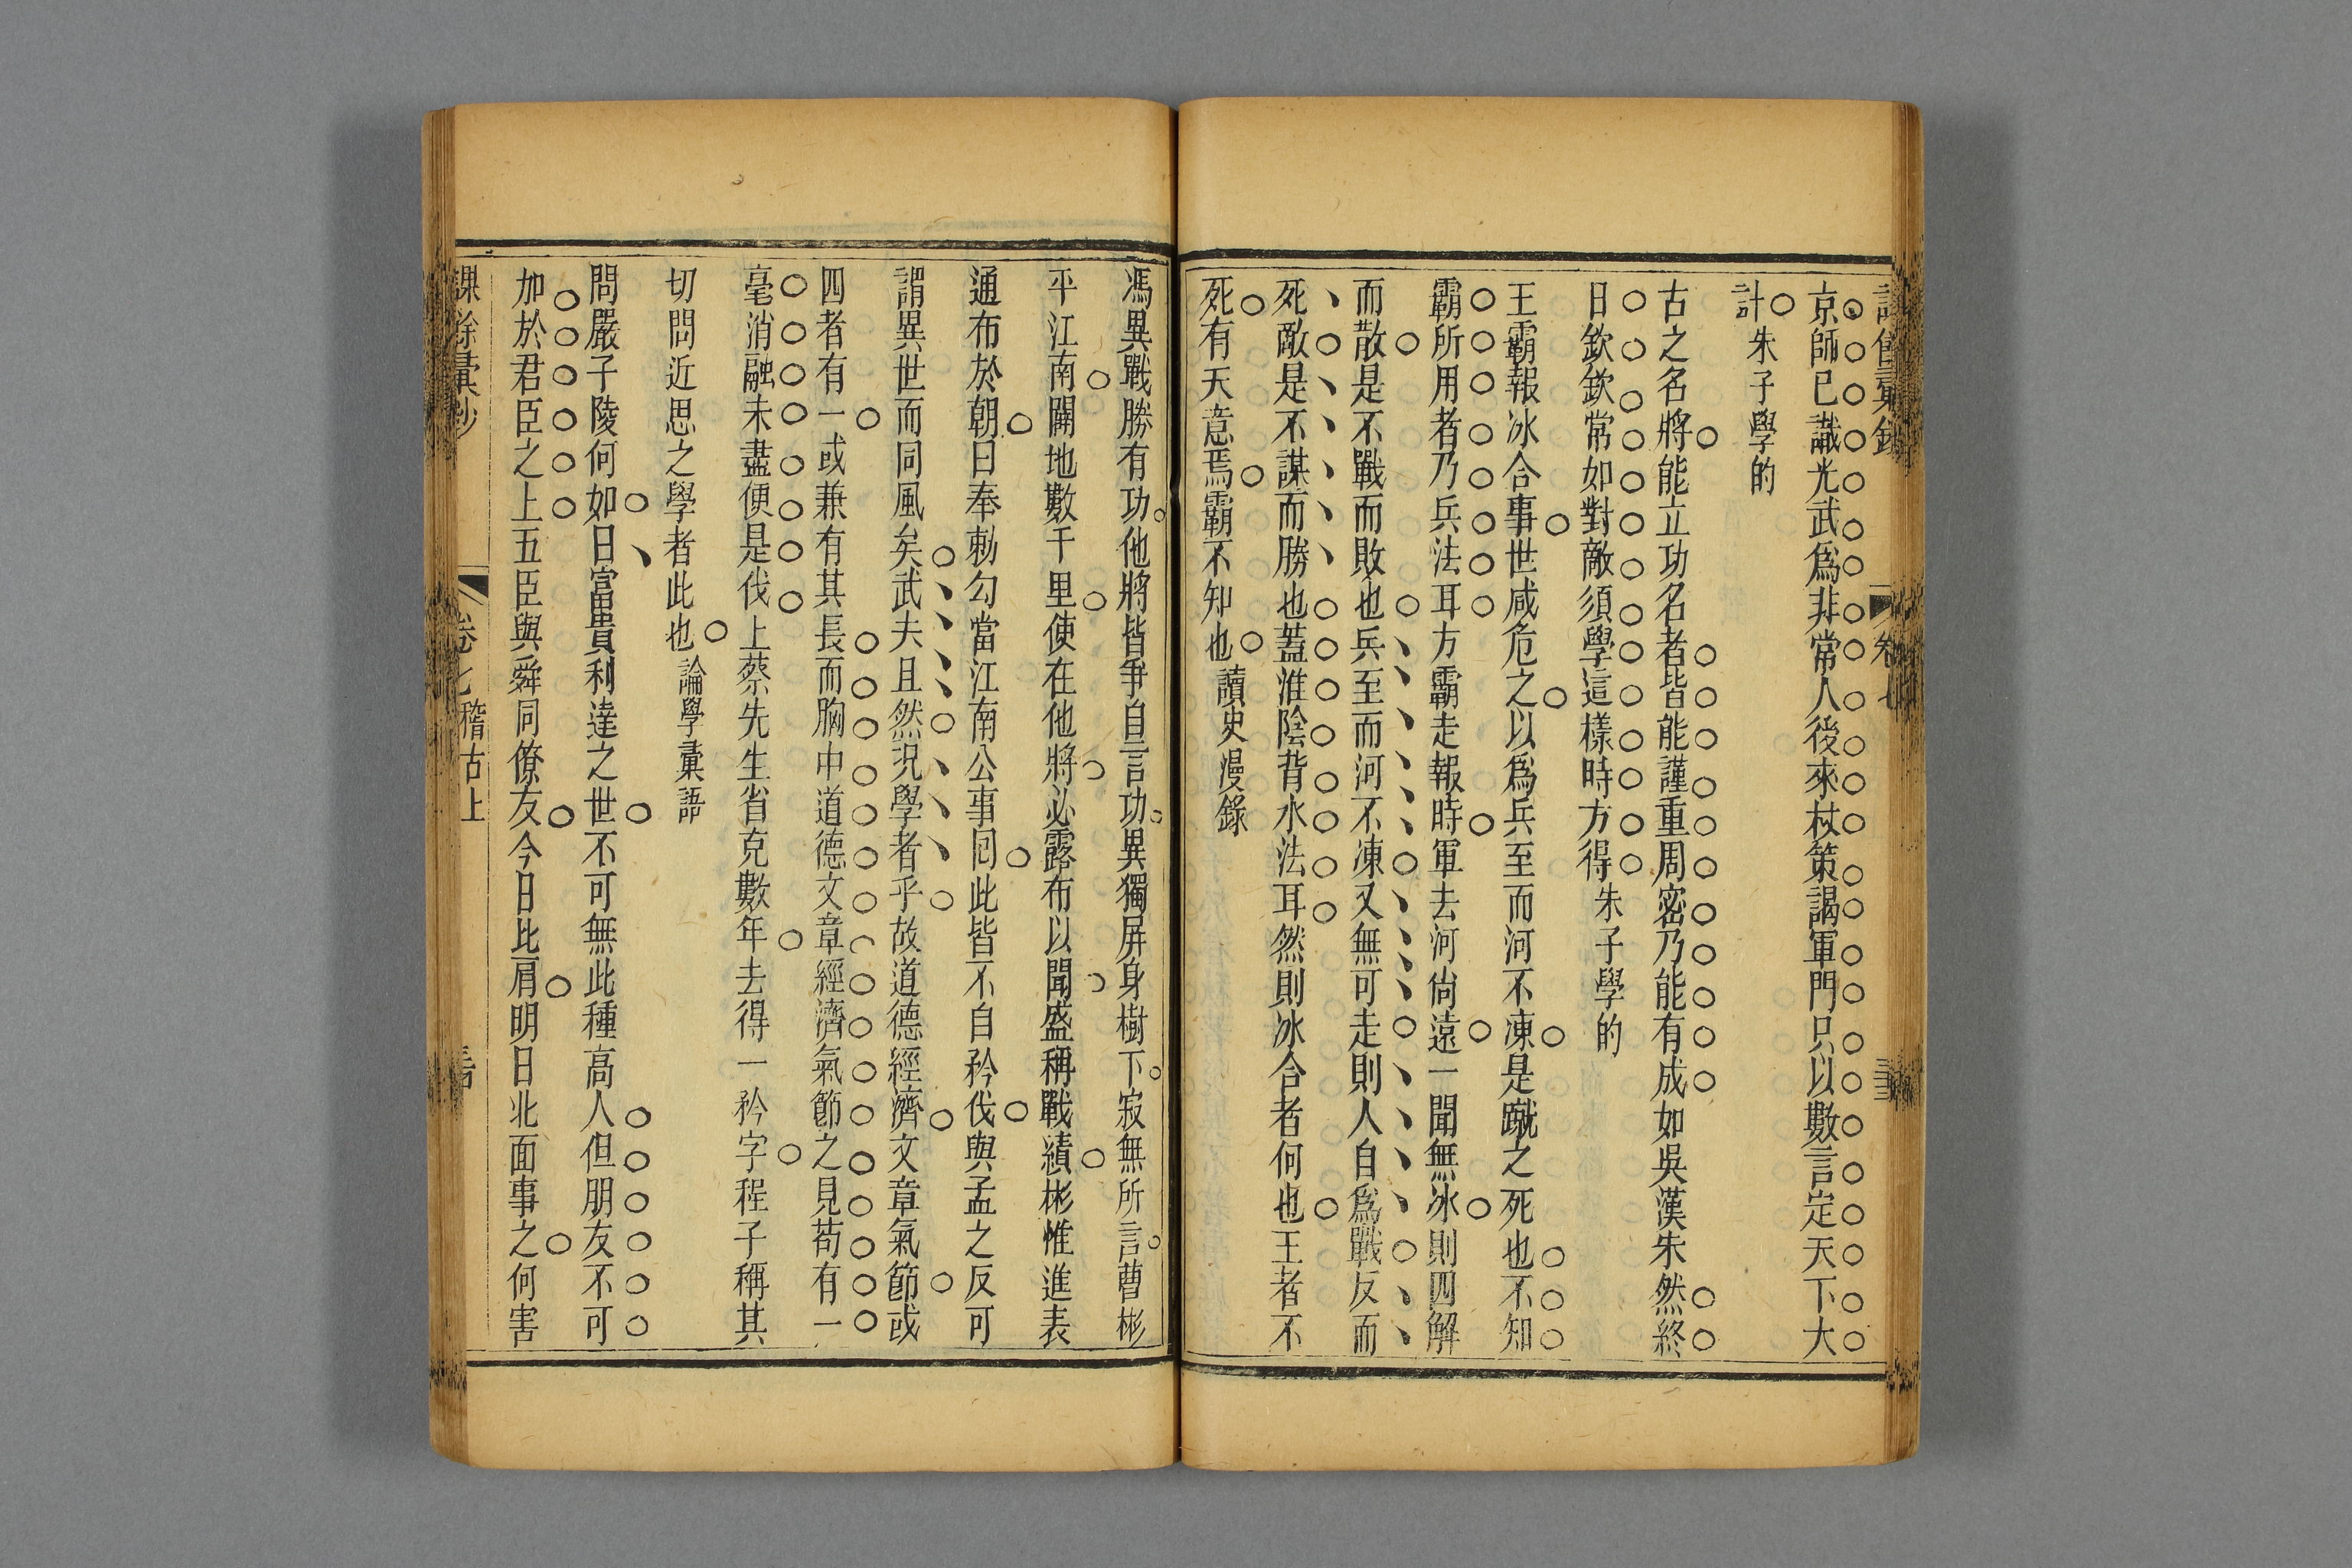 京師已識光武爲非常人後來杖策謁軍門只以數言定天下大
計朱子學的
古之名將能立功名者皆能謹重周密乃能有成如吳漢朱然終
日欽欽常如對敵須學這樣時方得朱子學的
王霸報冰合事世咸危之以爲兵至而河不凍是蹴之死也不知
霸所用者乃兵法耳方霸走報時軍去河尙遠一聞無冰則四解
而散是不戰而敗也兵至而河不凍又無可走則人自爲戰反而
死敵是不謀而勝也蓋淮陰背水法耳然則冰合者何也王者不
死有天意焉霸不知也讀史漫錄
馮異戰勝有功他將皆爭自言功異獨屛身樹下寂無所言曹彬
平江南闢地數千里使在他將必露布以聞盛稱戰績彬惟進表
通布於朝曰奉勅勾當江南公事囘此皆不自矜伐與孟之反可
謂異世而同風矣武夫且然況學者乎故道德經濟文章氣節或
四者有一或兼有其長而胸中道德文章經濟氣節之見苟有一
毫消融未盡便是伐上蔡先生省克數年去得一矜字程子稱其
切問近思之學者此也論學彙語
問嚴子陵何如曰富貴利達之世不可無此種高人但朋友不可
加於君臣之上五臣與舜同僚友今日比肩明日北面事之何害
課餘彙鈔 卷七 稽古上